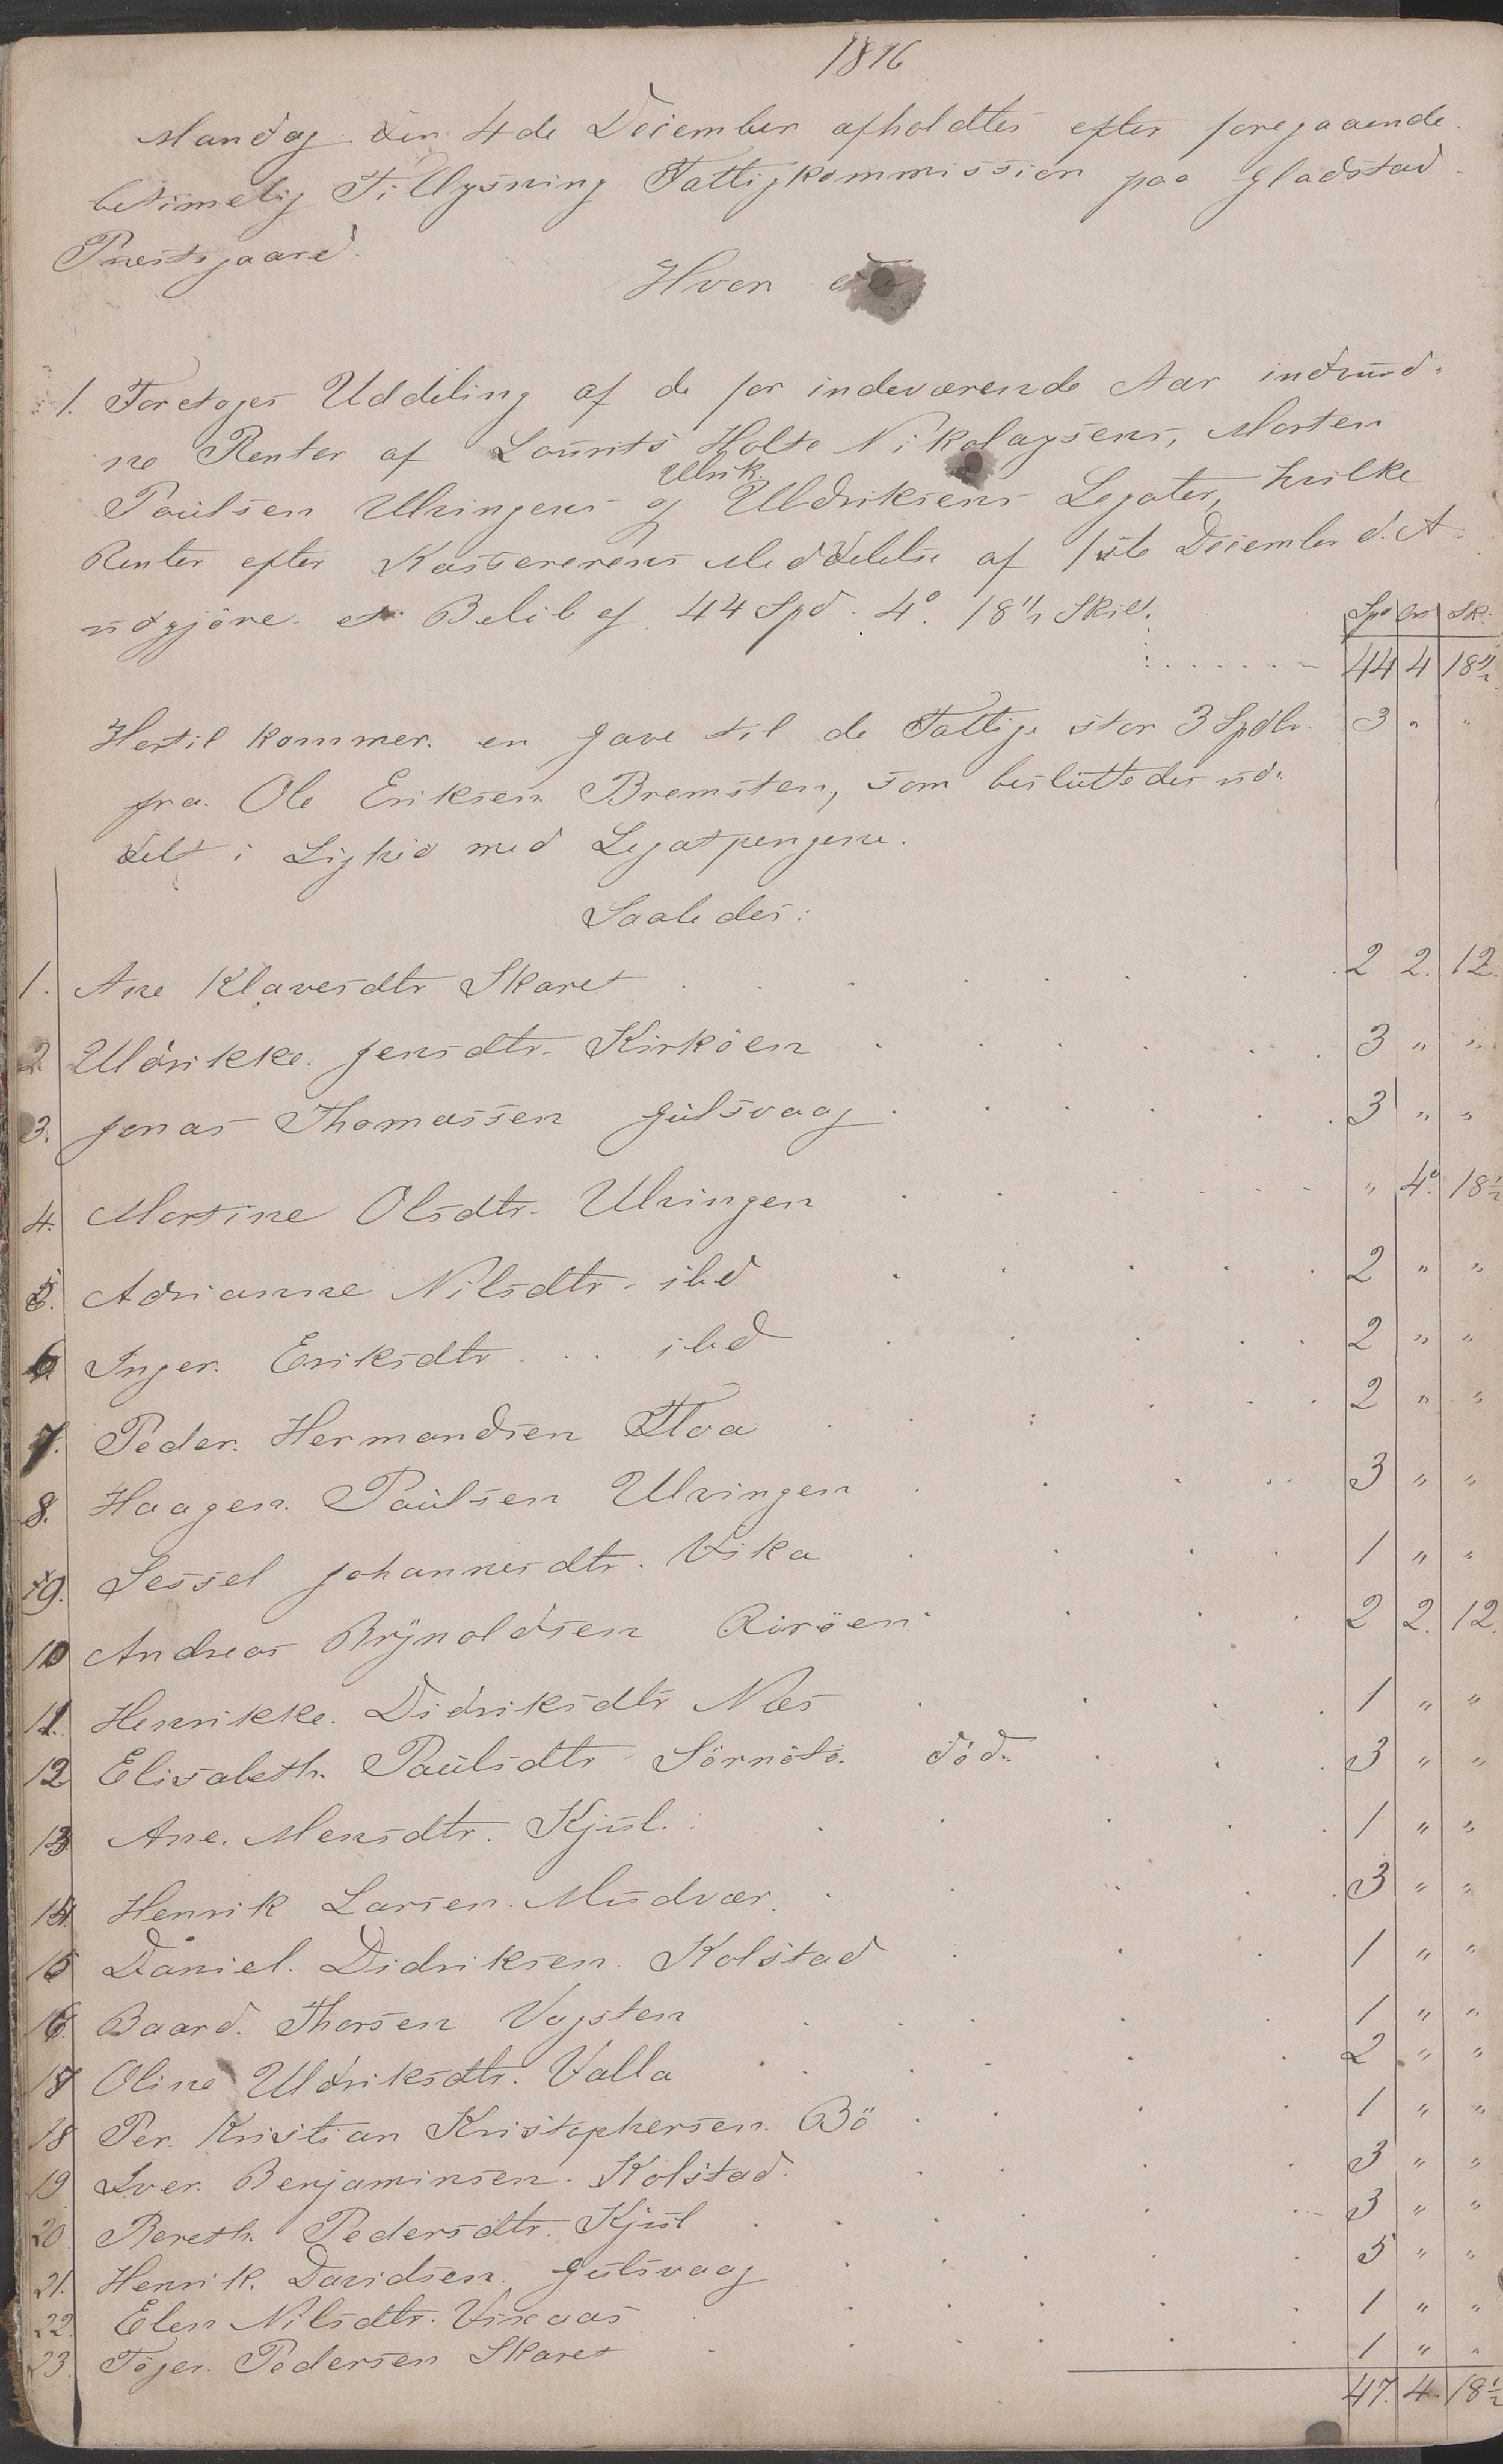 1876
Mandag den 4de December afholdtes efter foregaaende
betimelig Tillysning Fattigkommission paa Gladstad
Præstegaard.
Hvor da
1. Foretoges Uddeling af de for indeværende Aar indvund-
ne Renter af Lourits Holte Nikolaysens, Morten
Ulrik
Paulsen Ulvingens og Uldriksens Legater, hvilke
Renter efter Kassererens Meddelelse af 1ste December d. A.
udgjöre et Belöb af 44 Spd. 4 o. 18 1/2 Skil.
Spd ort Sk:
44 4 18 1/2
Hertil kommer en Gave til de Fattige stor 3 Spdlr. 3 " "
fra Ole Eriksen Bremsten, som besluttedes ud-
delt i Lighed med Legatpengene.
Saaledes:
1. Ane Klavesdtr Skaret 2 2. 12.
2. Uldrikke Jensdtr. Kirköen 3 " "
3. Jonas Thomassen Gulsvaag 3 " "
4. Martine Olsdtr. Ulvingen " 4 o. 18 1/2
5. Adrianne Nilsdtr. ibd 2 " "
6 Inger Eriksdtr ... ibd 2 " "
7. Peder Hermandsen Floa 2 " "
8. Haagen Paulsen Ulvingen 3 " "
9. Sessel Johannesdtr. Vika 1 " "
10 Andreas Brynoldsen Riröen 2 2. 12.
11. Henrikke Didriksdtr Næs 1 " "
12 Elisabeth Paulsdtr Sörnöts. död. 3 " "
13 Ane Mensdtr. Kjul. 1 " "
14. Henrik Larsen Mudvær 3 " "
15 Daniel Didriksen Kolstad 1 " "
16. Baard Thorsen Vagsten 1 " "
17 Oline Uldriksdtr. Valla 2 " "
18 Per Kristian Kristophersen Bö 1 " "
19 Iver Benjaminsen Kolstad. 3 " "
20 Bereth Pedersdtr. Kjul 3 " "
21. Henrik Davidsen Gulsvaag 5 " "
22. Elen Nilsdtr. Vikaas 1 " "
23. Töger Pedersen Skaret 1 " "
47. 4. 18 1/2